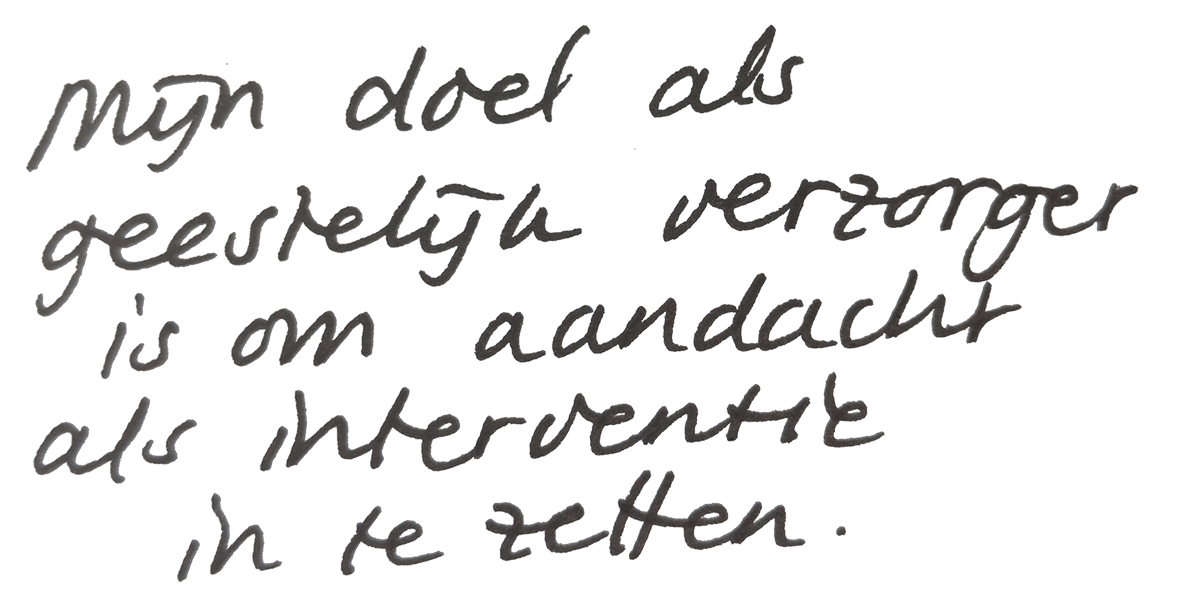 Mijn doel als
geestelijk verzorger
is om aandacht
als interventie
in te zetten.